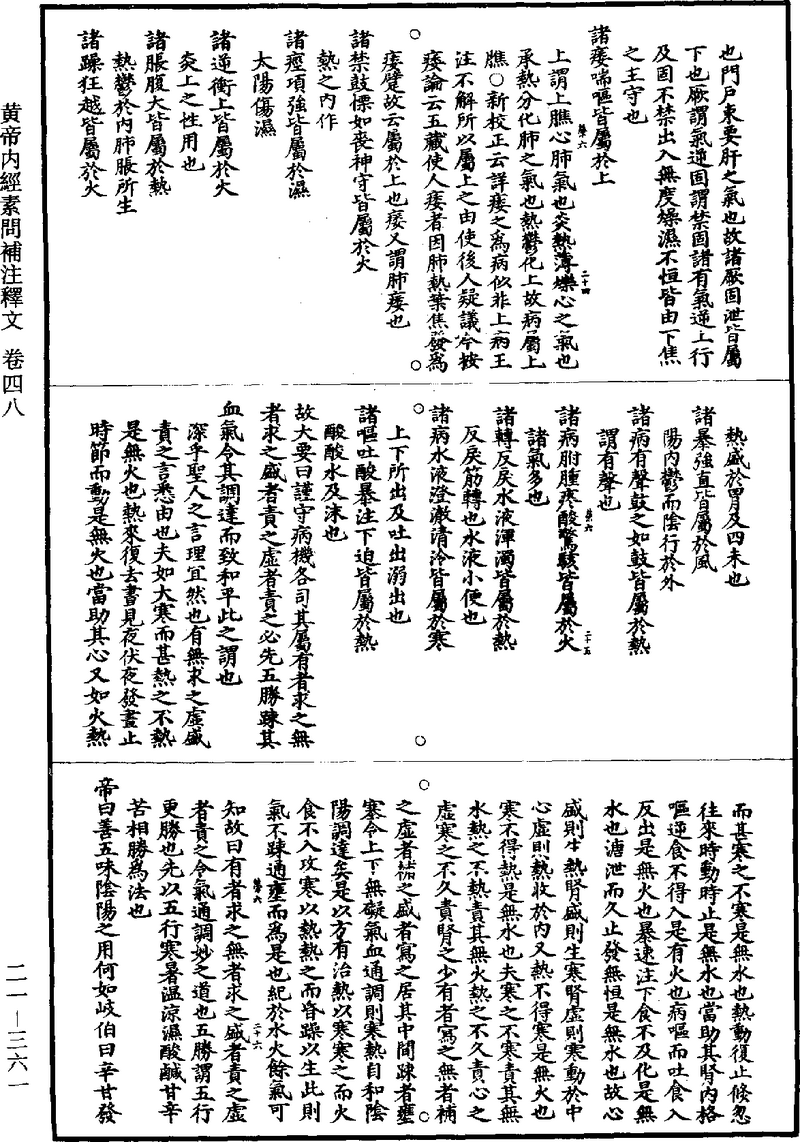 黄帝内經素問補注釋文　卷四八
二一—三六一
也門戶束要肝之氣也故諸厥固泄皆屬
下也厥謂氣逆固謂禁固諸有氣逆上行
及固不禁出入無度燥濕不恒皆由下焦
之主守也
諸痿喘嘔皆屬於上
上謂上膲心肺氣也炎熱薄爍心之氣也
承熱分化肺之氣也熱鬱化上故病屬上
膲○新校正云詳痿之爲病似非上病王
注不解所以屬上之由使後人疑議今按
痿論云五藏使人痿者因肺熱葉焦發爲
痿躄故云屬於上也痿又謂肺痿也
諸禁鼓慄如喪神守皆屬於火
熱之內作
諸痙項強皆屬於濕
太陽傷濕
諸逆衝上皆屬於火
炎上之性用也
諸脹腹大皆屬於熱
熱鬱於內肺脹所生
諸躁狂越皆屬於火
熱盛於胃及四末也
諸暴強直皆屬於風
陽內鬱而陰行於外
諸病有聲鼓之如鼓皆屬於熱
謂有聲也
諸病胕腫疼酸驚駭皆屬於火
諸氣多也
諸轉反戾水液渾濁皆屬於熱
反戾筋轉也水液小便也
諸病水液澄澈清冷皆屬於寒
上下所出及吐出溺出也
諸嘔吐酸暴注下迫皆屬於熱
酸酸水及沫也
故大要曰謹守病機各司其屬有者求之無
者求之盛者責之虛者責之必先五勝踈其
血氣令其調達而致和平此之謂也
深乎聖人之言理宜然也有無求之虛盛
責之言悉由也夫如大寒而甚熱之不熱
是無火也熱來復去晝見夜伏夜發晝止
時節而動是無火也當助其心又如火熱
而甚寒之不寒是無水也熱動復止倐忽
往來時動時止是無水也當助其腎內格
嘔逆食不得入是有火也病嘔而吐食入
反出是無火也暴速注下食不及化是無
水也溏泄而久止發無恒是無水也故心
盛則生熱腎盛則生寒腎虛則寒動於中
心虛則熱收於內又熱不得寒是無火也
寒不得熱是無水也夫寒之不寒責其無
水熱之不熱責其無火熱之不久責心之
虛寒之不久責腎之少有者寫之無者補
之虛者補之盛者寫之居其中間踈者壅
塞令上下無礙氣血通調則寒熱自和陰
陽調達矣是以方有治熱以寒寒之而火
食不入攻寒以熱熱之而昏躁以生此則
氣不踈通壅而爲是也紀於水火餘氣可
知故曰有者求之無者求之盛者責之虛
者責之令氣通調妙之道也五勝謂五行
更勝也先以五行寒暑溫涼濕酸鹹甘辛
苦相勝爲法也
帝曰善五味陰陽之用何如岐伯曰辛甘發